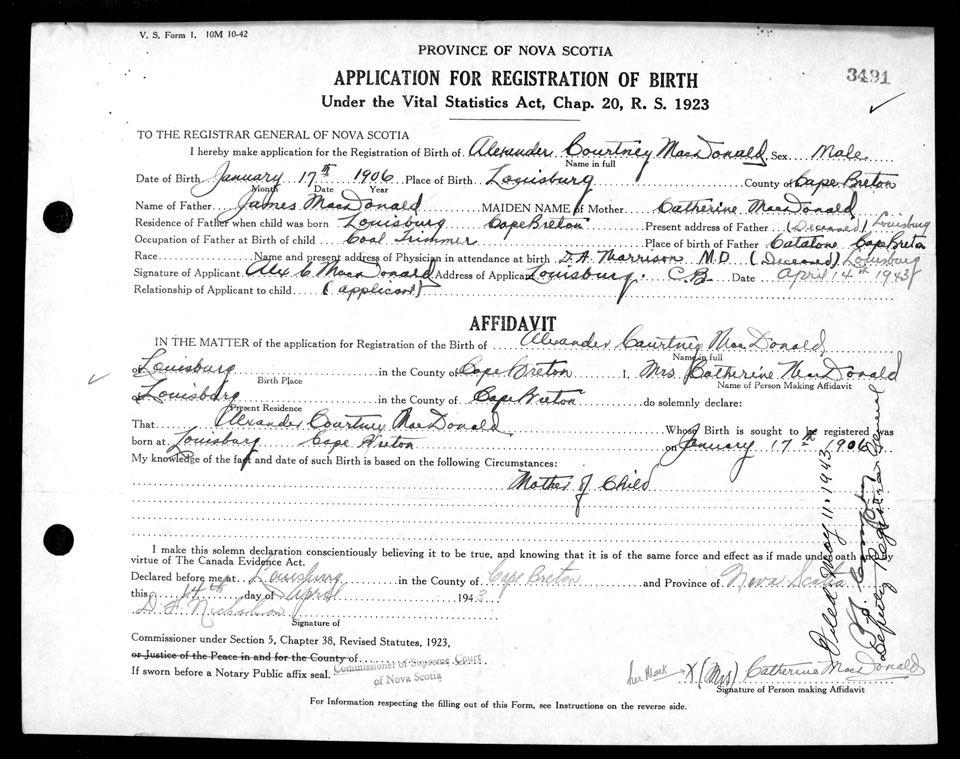 V. S. Form 1. 10M 10-42
PROVINCE OF NOVA SCOTIA
3491
APPLICATION FOR REGISTRATION OF BIRTH
Under the Vital Statistics Act, Chap. 20, R. S. 1923
TO THE REGISTRAR GENERAL OF NOVA SCOTIA
I hereby make application for the Registration of Birth of Alexander Courtney MacDonald Sex Male
Name in full
Date of Birth January 17th 1906 Place of Birth Louisburg County of Cape Breton
Month Date Year
Name of Father James MacDonald MAIDEN NAME of Mother Catherine MacDonald
Residence of Father when child was born Louisburg Cape Breton Present address of Father (Deceased) Louisburg
Occupation of Father at Birth of child Coal Trimmer Place of Birth of Father Catalone Cape Breton
Race Name and present address of Physician in attendance at birth D. A. Morrison M.D. (Deceased) Louisburg
Signature of Applicant Alex C MacDonald Address of Applicant Louisburg. C.B. Date April 14th 1943
Relationship of Applicant to child (applicant)
AFFIDAVIT
IN THE MATTER of the application for Registration of the Birth of Alexander Courtney MacDonald
Name in full
of Louisburg in the County of Cape Breton I, Mrs. Catherine MacDonald
Birth Place Name of Person Making Affidavit
of Louisburg in the County of Cape Breton do solemnly declare:
Present Residence
That Alexander Courtney MacDonald Whose Birth is sought to be registered was
born at Louisburg Cape Breton on January 17th 1906
My knowledge of the fact and date of such Birth is based on the following Circumstances:
Mother of Child
I make this solemn declaration conscientiously believing it to be true, and knowing that it is of the same force and effect as if made under oath and by
virtue of The Canada Evidence Act.
Declared before me at Louisburg in the County of Cape Breton and Province of Nova Scotia
this 14th day of April 1943
D. F. Nicholson
Signature of
Commissioner under Section 5, Chapter 38, Revised Statutes, 1923,
or Justice of the Peace in and for the County of
Commissioner of Supreme Court
of Nova Scotia
If sworn before a Notary Public affix seal.
her Mark X (Mrs) Catherine MacDonald
Signature of Person making Affidavit
For Information respecting the filling out of this Form, see Instructions on the reverse side.
Filed May 11. 1943
Deputy Registrar General